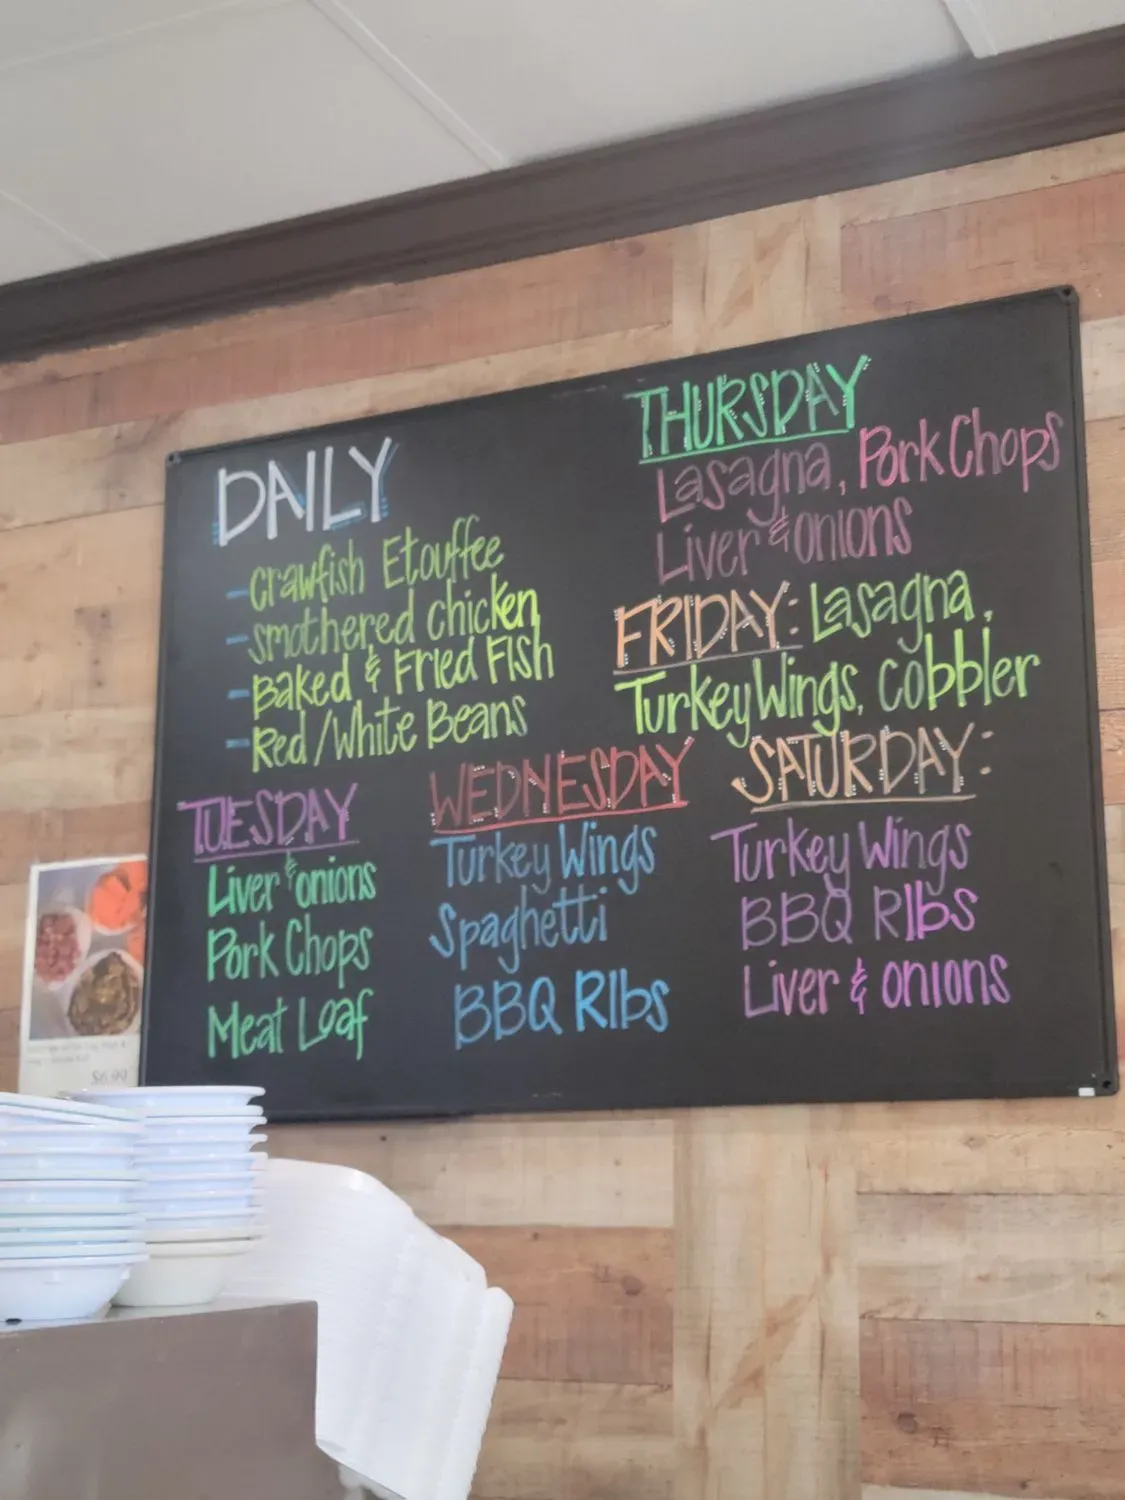 DAILY
- Crawfish Etouffee
- Smothered chicken
- Baked & Fried FIsh
- Red/White Beans
TUESDAY
Liver & onions
Pork Chops
Meat Loaf
WEDNESDAY
Turkey Wings
Spaghetti
BBQ RIbs
THURSDAY
Lasagna, Pork Chops
Liver & onions
FRIDAY: Lasagna,
Turkey Wings, cobbler
SATURDAY:
Turkey Wings
BBQ RIbs
Liver & onions
$6.99